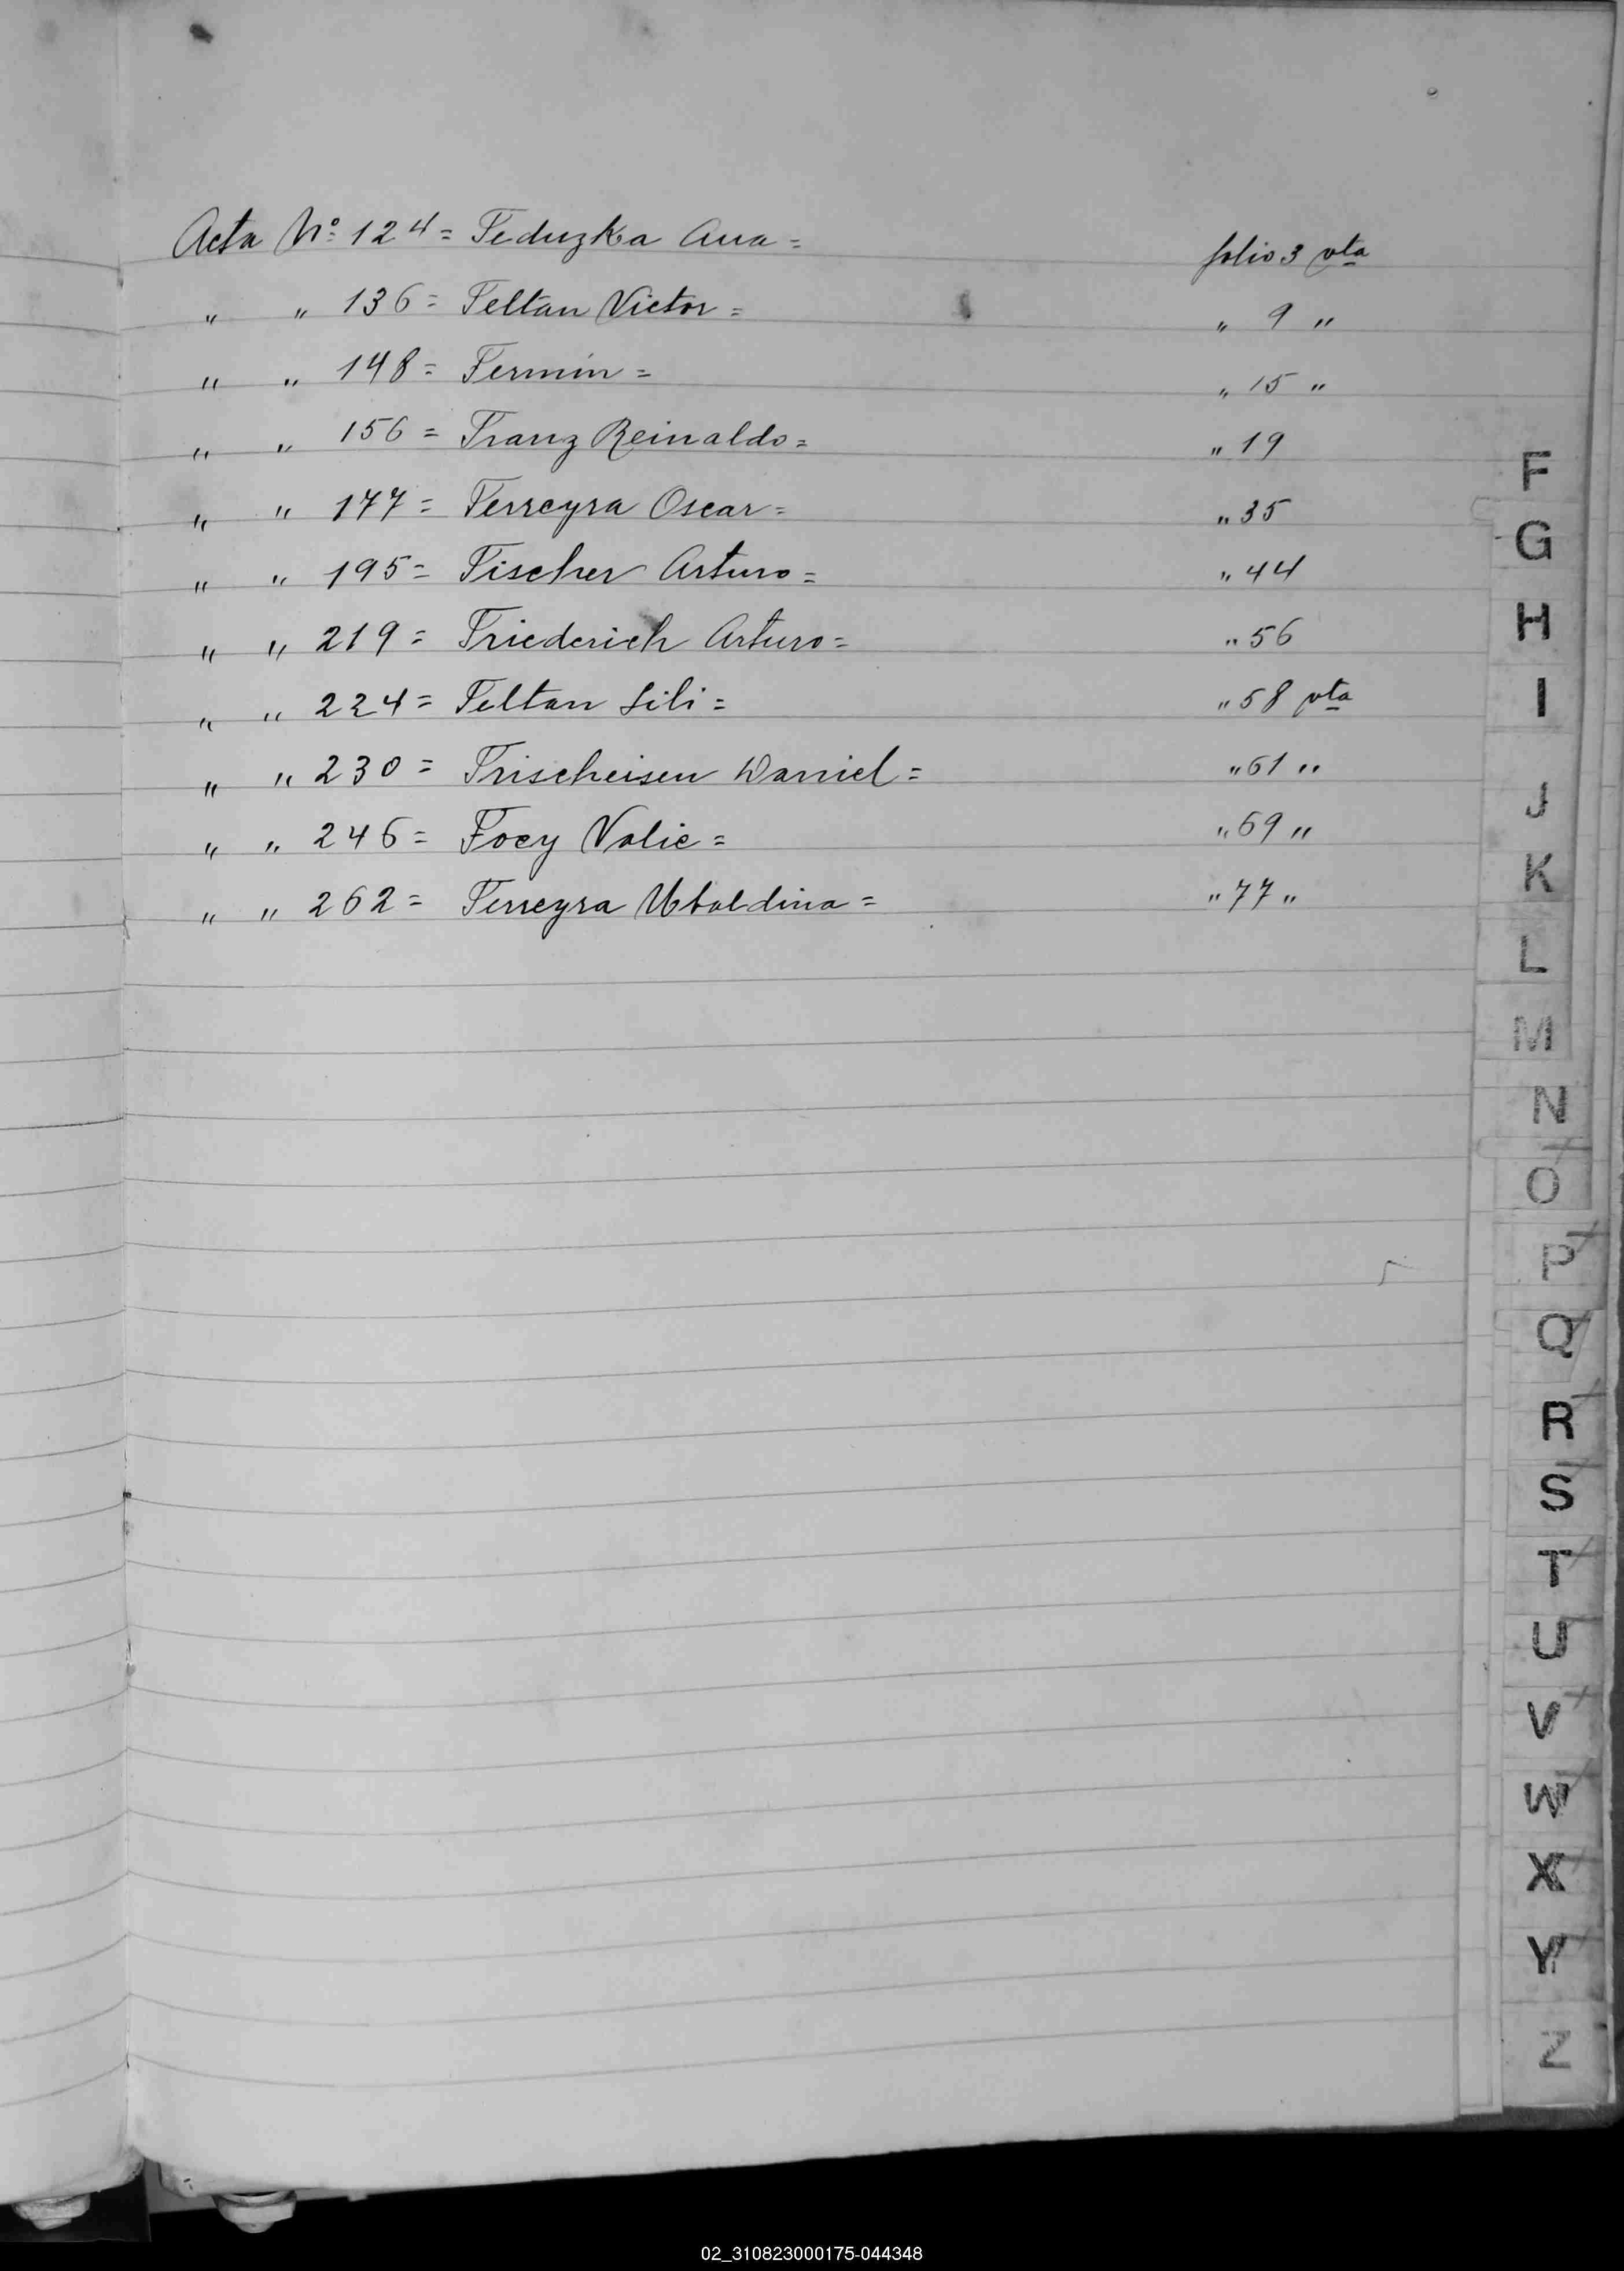 Acta Nº 124 = Feduzka Ana = folio 3 vta
" " 136 = Feltan Victor = " 9 "
" " 148 = Fermin = " 15 "
" " 156 = Franz Reinaldo = " 19
" " 177 = Ferreyra Oscar = " 35
" " 195 = Fischer Arturo = " 44
" " 219 = Friederich Arturo = " 56
" " 224 = Feltan Lili = " 58 vta
" " 230 = Frischeisen Daniel = " 61 "
" " 246 = Foey Valie = " 69 "
" " 262 = Ferreyra Ubaldina = " 77 "
F
G
H
I
J
K
L
M
N
O
P
Q
R
S
T
U
V
W
X
Y
Z
02_310823000175-044348